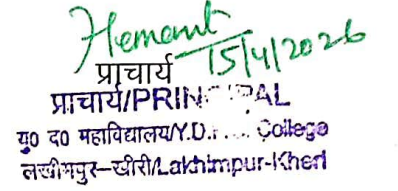 Hemant
15/4/2026
प्राचार्य
प्राचार्य/PRIN PAL
यु0 द0 महाविद्यालय/Y.D. College
लखीमपुर–खीरी/Lakhimpur-Kheri